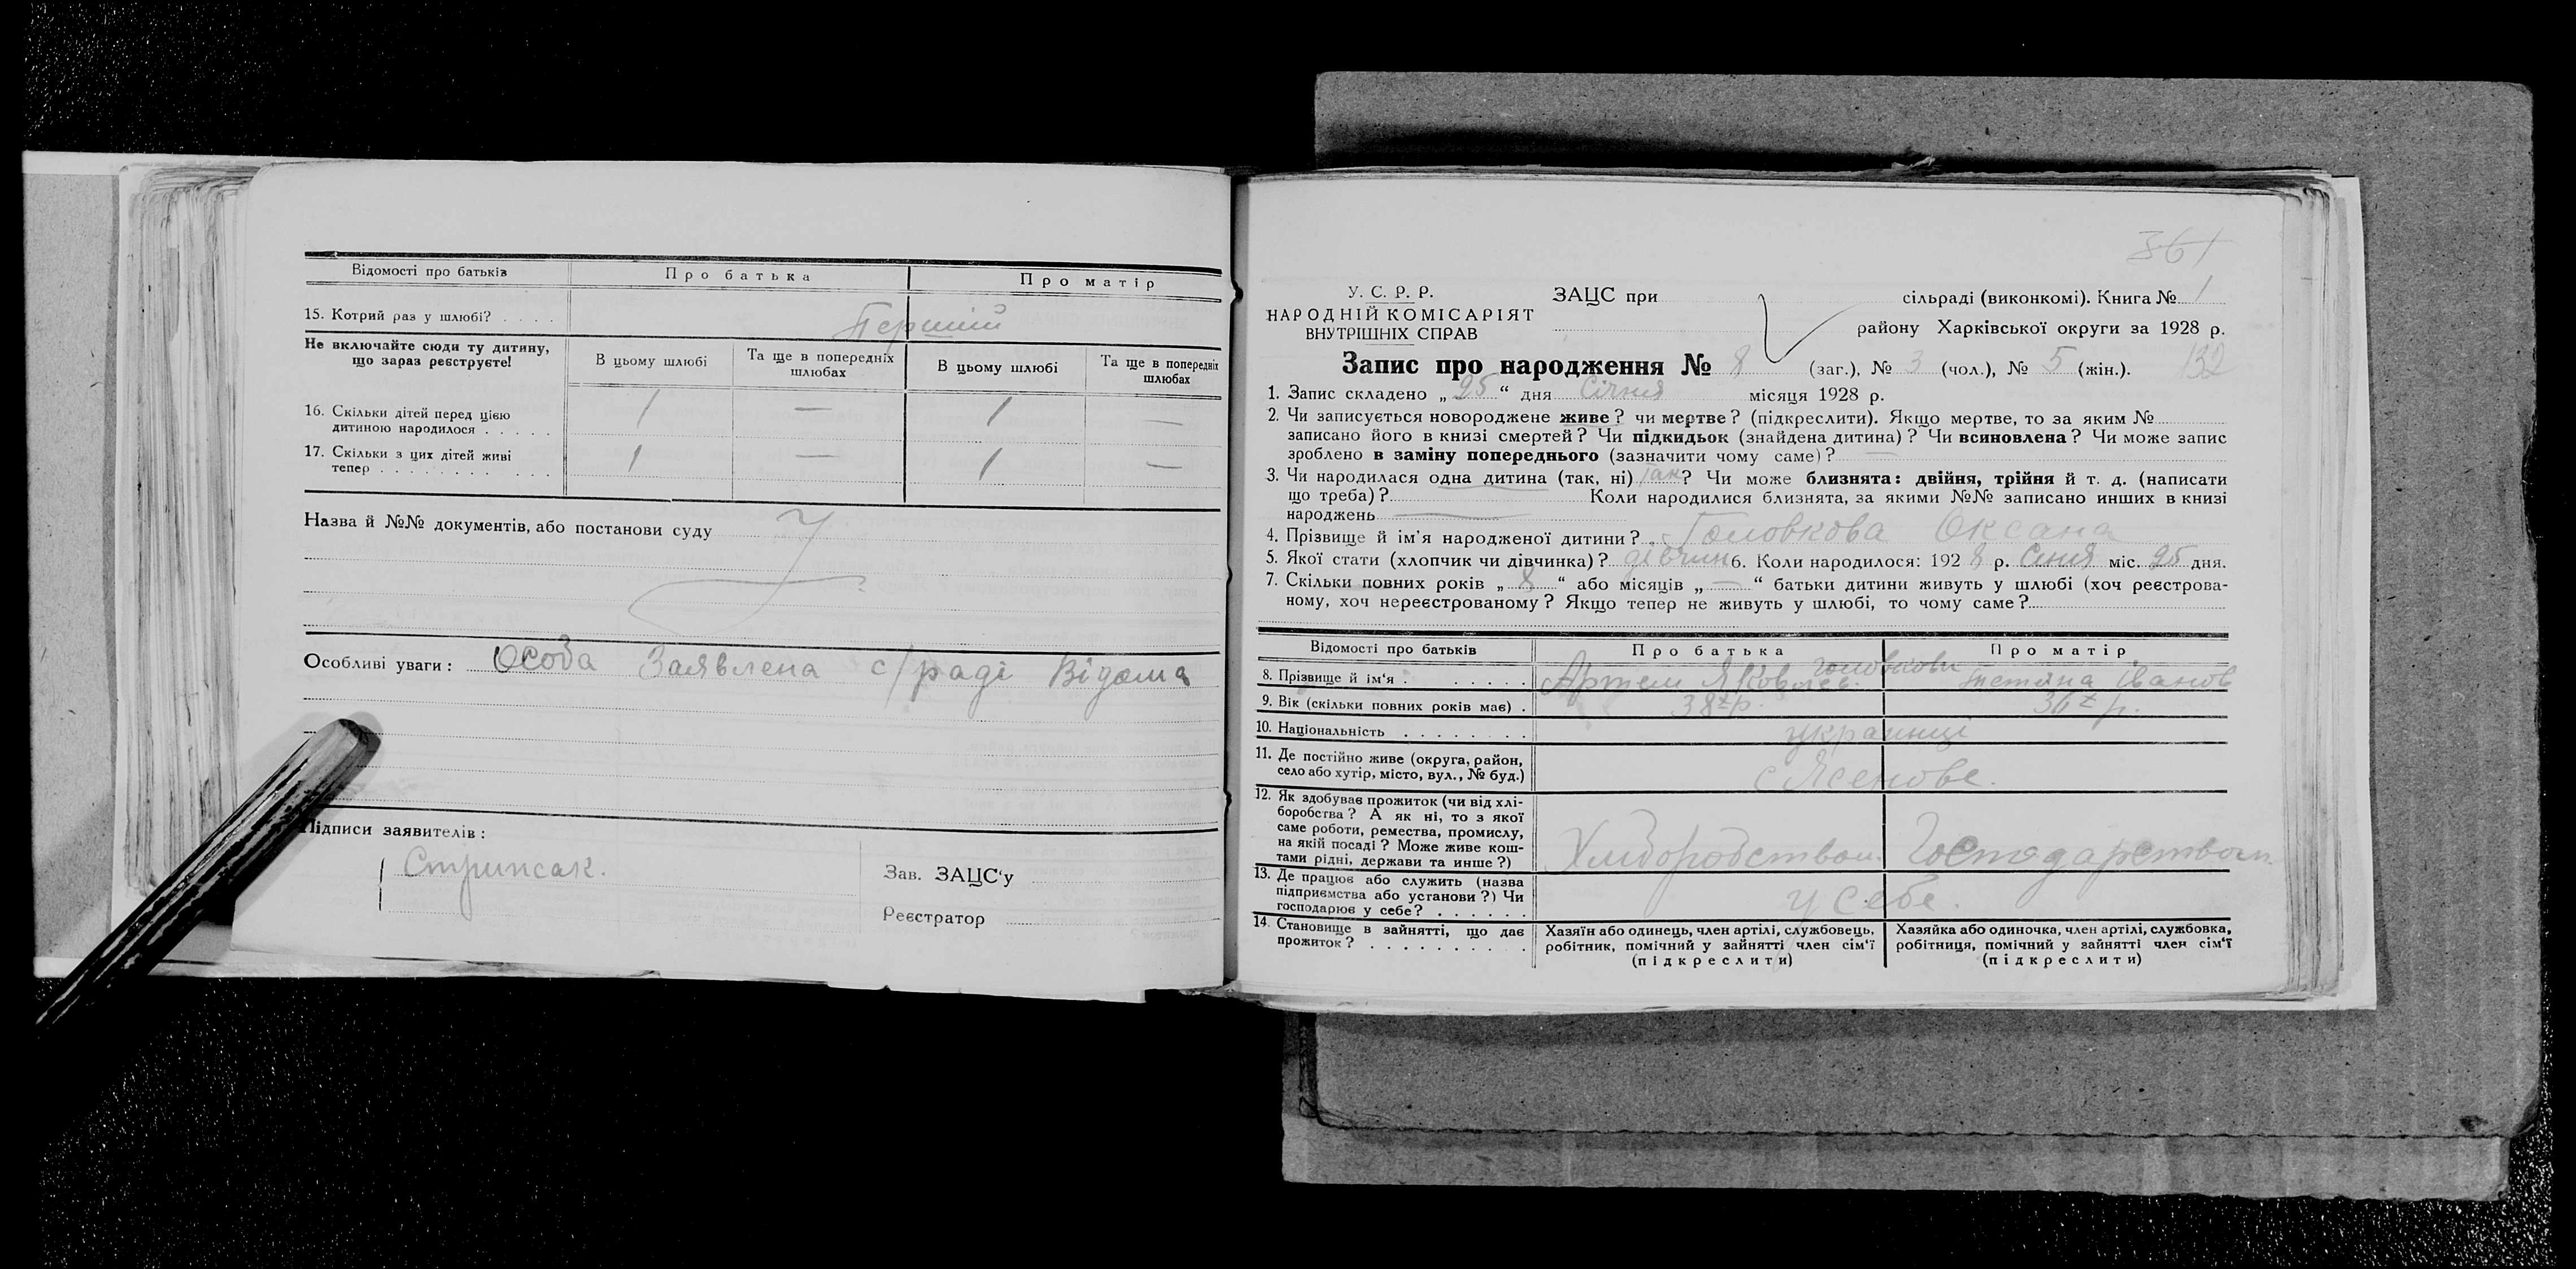 Відомості про батьків Про батька Про матір
15. Котрий раз у шлюбі? Перший
Не включайте сюди ту дитину, що зараз реєструєте! В цьому шлюбі Та ще в попередніх шлюбах В цьому шлюбі Та ще в попередніх шлюбах
16. Скільки дітей перед цією дитиною народилося 1 — 1 —
17. Скільки з цих дітей живі тепер 1 — 1 —
Назва й №№ документів, або постанови суду
Особливі уваги: Особа Заявлена с/раді Відома
Підписи заявителів:
Зав. ЗАЦС'у
Реєстратор
361
У. С. Р. Р.
НАРОДНІЙ КОМІСАРІЯТ
ВНУТРІШНІХ СПРАВ
ЗАЦС при сільраді (виконкомі). Книга № 1
району Харківської округи за 1928 р.
Запис про народження № 8 (заг.), № 3 (чол.), № 5 (жін.). 132
1. Запис складено „ 25 “ дня Січня місяця 1928 р.
2. Чи записується новороджене живе? чи мертве? (підкреслити). Якщо мертве, то за яким №
записано його в книзі смертей? Чи підкидьок (знайдена дитина)? Чи всиновлена? Чи може запис
зроблено в заміну попереднього (зазначити чому саме)? —
3. Чи народилася одна дитина (так, ні) так? Чи може близнята: двійня, трійня й т. д. (написати
що треба)? Коли народилися близнята, за якими №№ записано инших в книзі
народжень —
4. Прізвище й ім'я народженої дитини? Головкова Оксана
5. Якої стати (хлопчик чи дівчинка)? дівчин 6. Коли народилося: 192 8 р. Січня міс. 25 дня.
7. Скільки повних років „ 8 “ або місяців „ — “ батьки дитини живуть у шлюбі (хоч реєстрова-
ному, хоч нереєстрованому? Якщо тепер не живуть у шлюбі, то чому саме?
Відомості про батьків Про батька Про матір
8. Прізвище й ім'я Головкови Артем Яковлев. Тетяна Іванов
9. Вік (скільки повних років має) 38 р. 36 р.
10. Національність українці
11. Де постійно живе (округа, район, село або хутір, місто, вул., № буд.) с Ясенове.
12. Як здобуває прожиток (чи від хлі-
боробства? А як ні, то з якої
саме роботи, ремества, промислу,
на якій посаді? Може живе кош-
тами рідні, держави та инше?) Хліборобством Господарством
13. Де працює або служить (назва
підприємства або установи?) Чи
господарює у себе? у себе.
14. Становище в зайнятті, що дає прожиток?
Хазяїн або одинець, член артілі, службовець,
робітник, помічний у зайнятті член сім'ї
(підкреслити)
Хазяйка або одиночка, член артілі, службовка,
робітниця, помічний у зайнятті член сім'ї
(підкреслити)